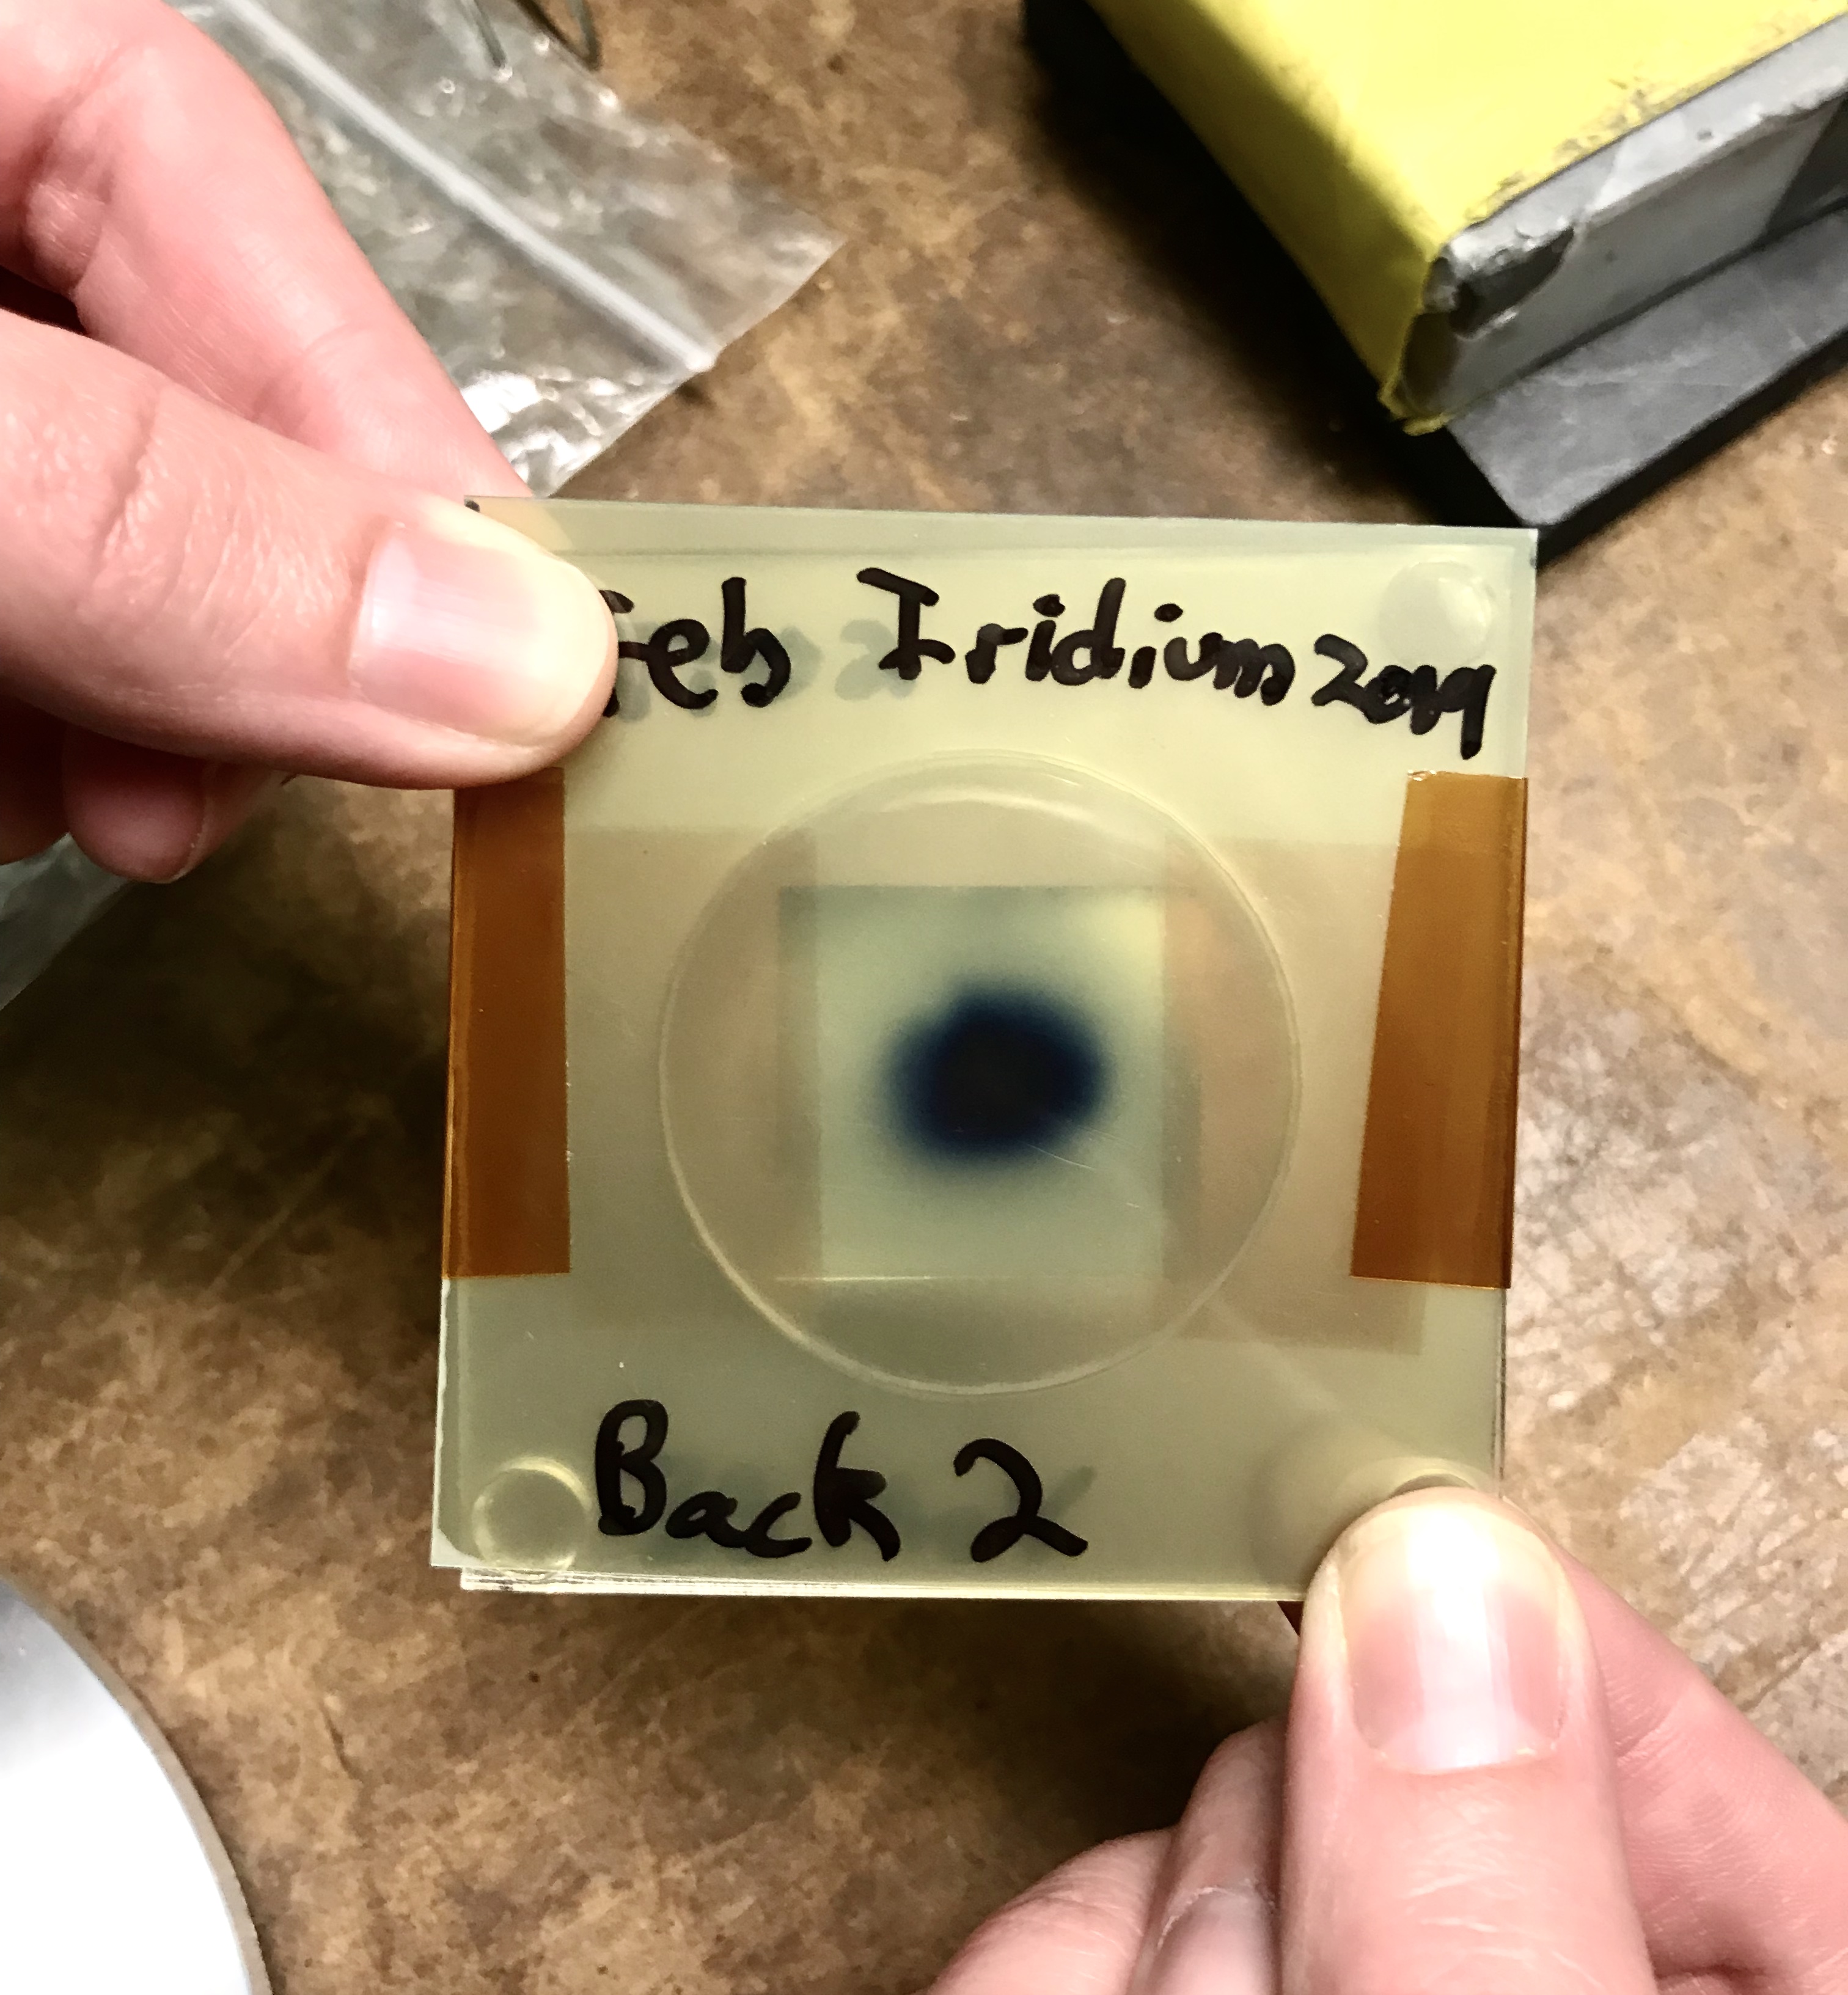 Feb Iridium 2019
Back 2